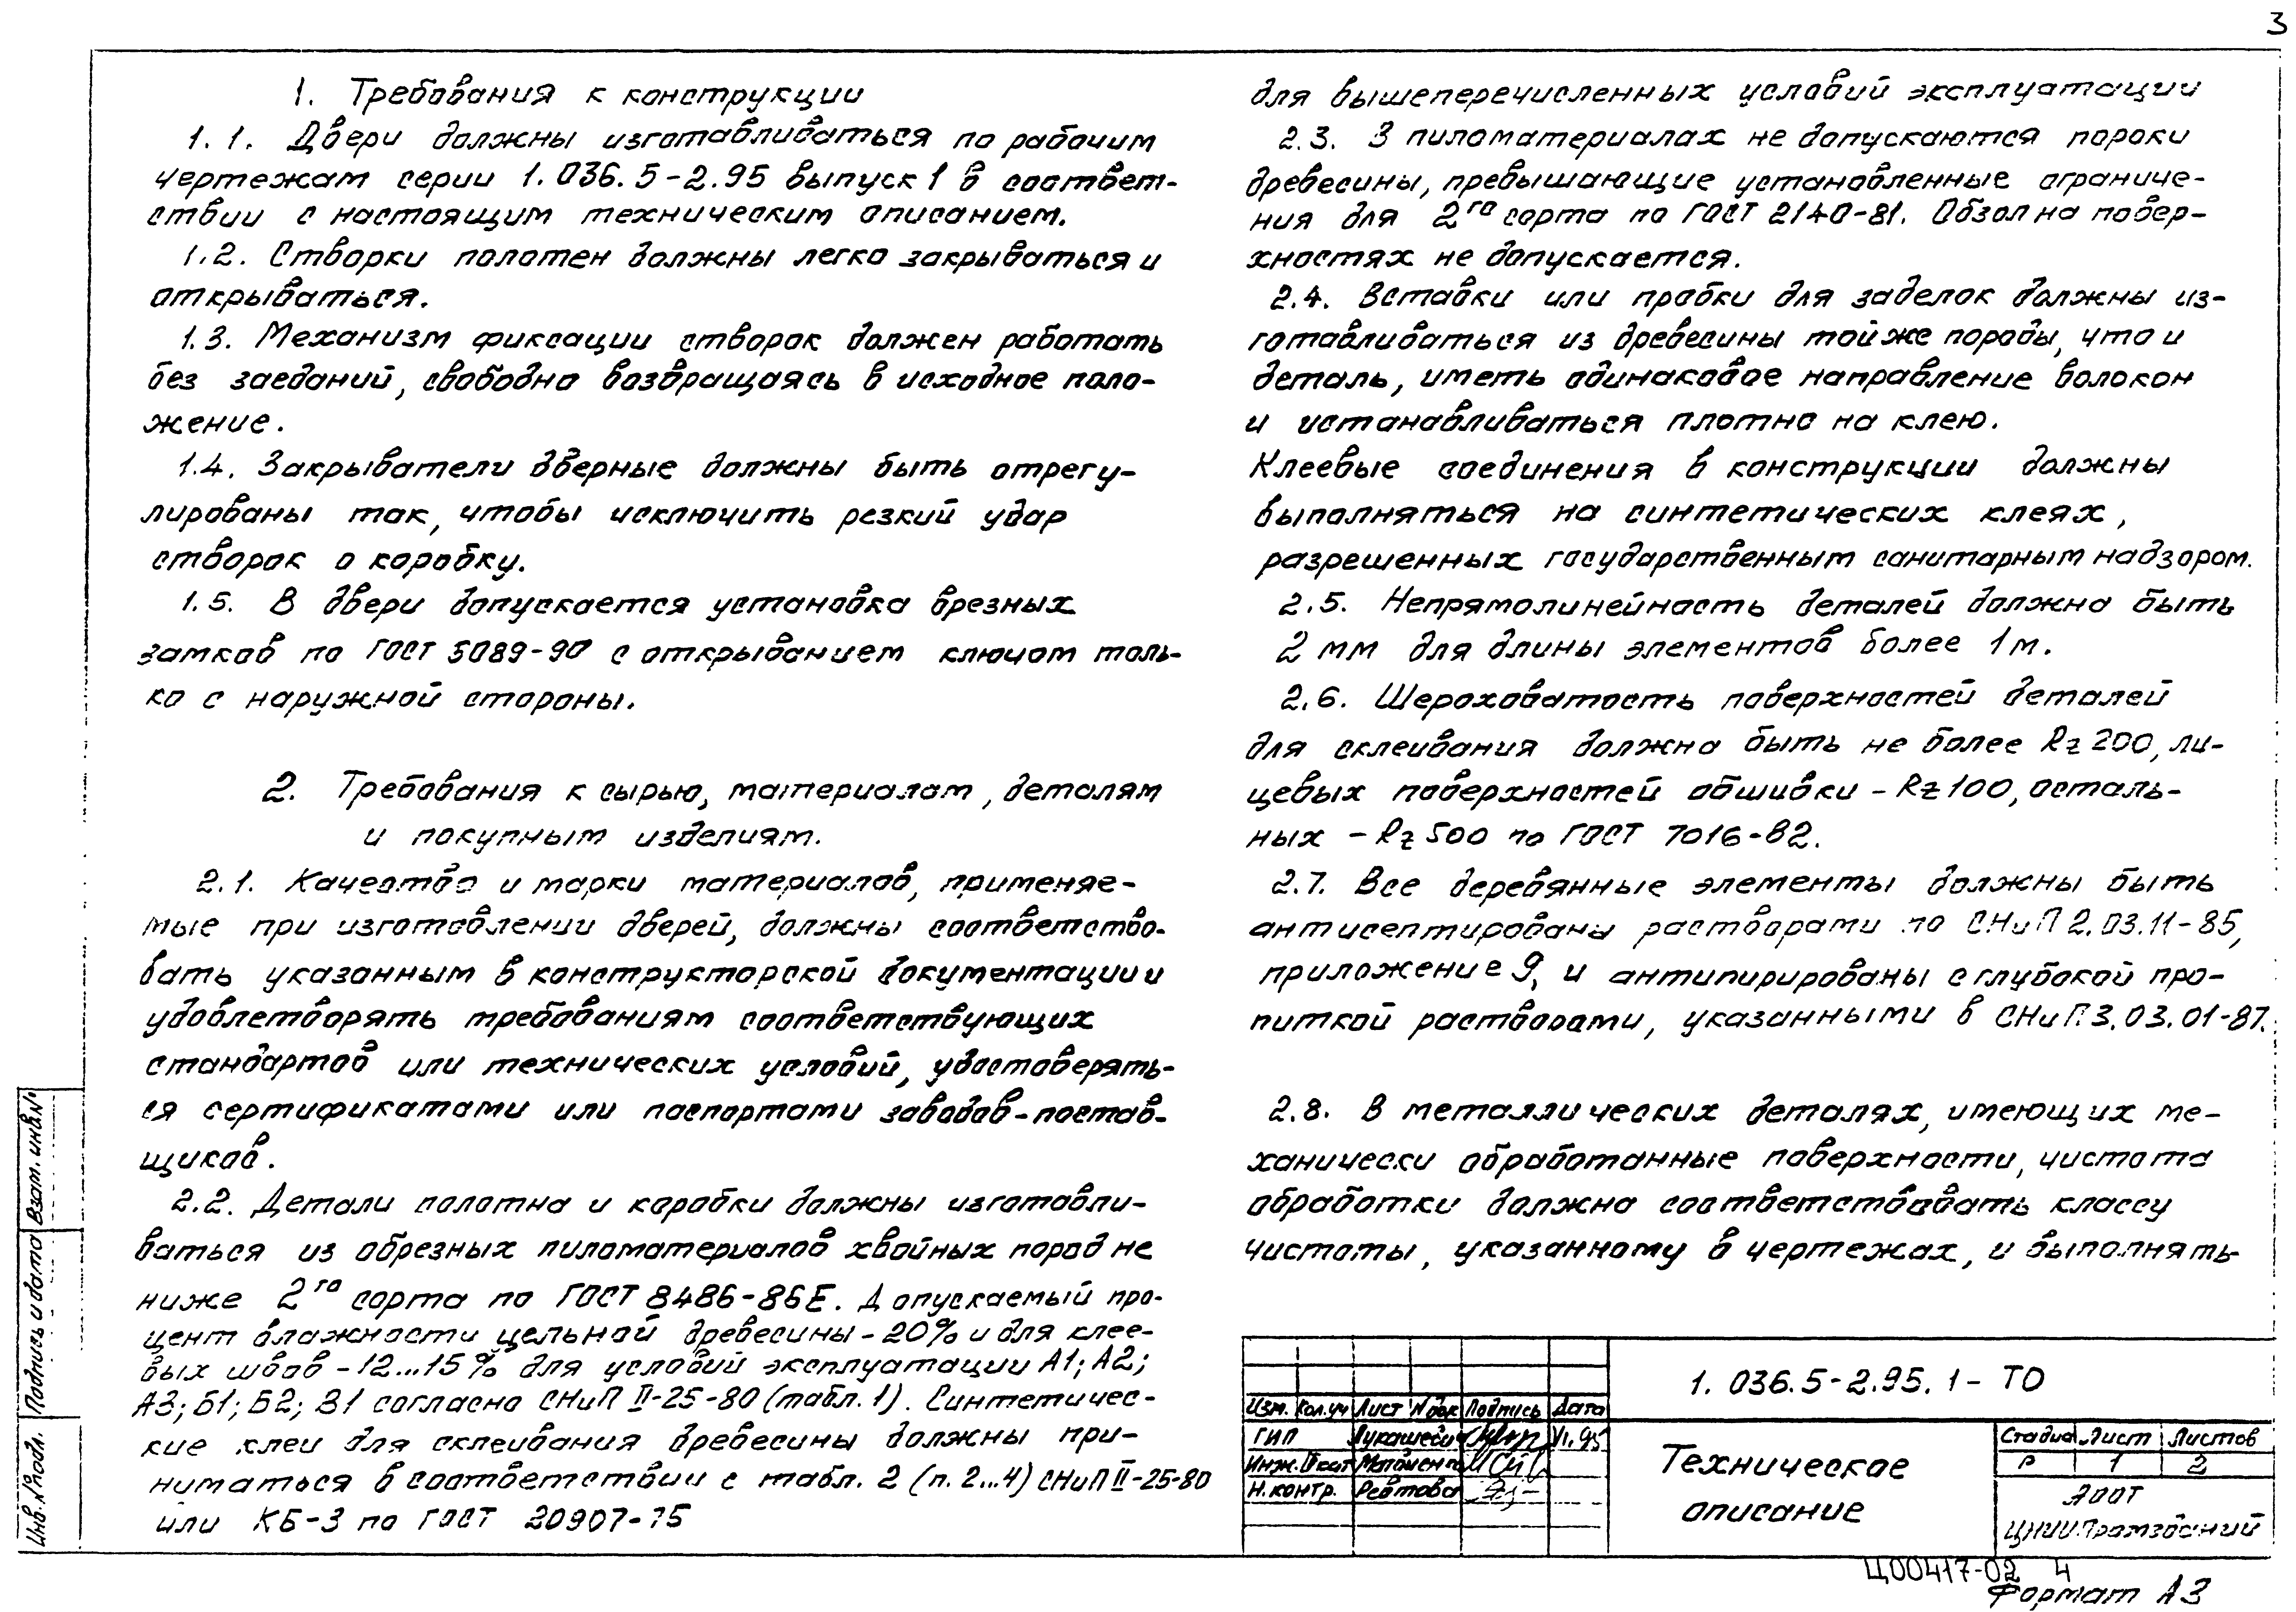 3
1. Требования к конструкции
1.1. Двери должны изготавливаться по рабочим
чертежам серии 1.036.5-2.95 выпуск 1 в соответ-
ствии с настоящим техническим описанием.
1.2. Створки полотен должны легко закрываться и
открываться.
1.3. Механизм фиксации створок должен работать
без заеданий, свободно возвращаясь в исходное поло-
жение.
1.4. Закрыватели дверные должны быть отрегу-
лированы так, чтобы исключить резкий удар
створок о коробку.
1.5. В двери допускается установка врезных
замков по ГОСТ 5089-90 с открыванием ключом толь-
ко с наружной стороны.
2. Требования к сырью, материалам, деталям
и покупным изделиям.
2.1. Качество и марки материалов, применяе-
мые при изготовлении дверей, должны соответство-
вать указанным в конструкторской документации и
удовлетворять требованиям соответствующих
стандартов или технических условий, удостоверять-
ся сертификатами или паспортами заводов-постав-
щиков.
2.2. Детали полотна и коробки должны изготавли-
ваться из обрезных пиломатериалов хвойных пород не
ниже 2го сорта по ГОСТ 8486-86Е. Допускаемый про-
цент влажности цельной древесины - 20% и для клее-
вых швов - 12...15% для условий эксплуатации А1; А2;
А3; Б1; Б2; В1 согласно СНиП II-25-80 (табл. 1). Синтетичес-
кие клеи для склеивания древесины должны при-
ниматься в соответствии с табл. 2 (п. 2...4) СНиП II-25-80
или КБ-3 по ГОСТ 20907-75
для вышеперечисленных условий эксплуатации
2.3. В пиломатериалах не допускаются пороки
древесины, превышающие установленные ограниче-
ния для 2го сорта по ГОСТ 2140-81. Обзол на повер-
хностях не допускается.
2.4. Вставки или пробки для заделок должны из-
готавливаться из древесины той же породы, что и
деталь, иметь одинаковое направление волокон
и устанавливаться плотно на клею.
Клеевые соединения в конструкции должны
выполняться на синтетических клеях,
разрешенных государственным санитарным надзором.
2.5. Непрямолинейность деталей должна быть
2 мм для длины элементов более 1 м.
2.6. Шероховатость поверхностей деталей
для склеивания должна быть не более Rz 200, ли-
цевых поверхностей обшивки - Rz 100, осталь-
ных - Rz 500 по ГОСТ 7016-82.
2.7. Все деревянные элементы должны быть
антисептированы растворами по СНиП 2.03.11-85,
приложение 9, и антипирированы с глубокой про-
питкой растворами, указанными в СНиП 3.03.01-87.
2.8. В металлических деталях, имеющих ме-
ханически обработанные поверхности, чистота
обработки должна соответствовать классу
чистоты, указанному в чертежах, и выполнять-
Взам. инв.№
Подпись и дата
Инв. № подл.
1.036.5-2.95.1-ТО
Изм. Кол.уч Лист № док Подпись Дата
ГИП VI.95
Н.контр. Ревтова
Техническое
описание
Стадия Лист Листов
Р 1 2
АООТ
ЦНИИПромзданий
Ц00417-02 4
Формат А3